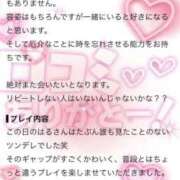 もありません。
容姿はもちろんですが一緒にいると好きになる
と思います。
そして厄介なことに時を忘れさせる能力をお持
ちです。
絶対また会いたいとなります。
リピートしない人はいないんじゃないかな？？
▶プレイ内容
この日のはるさんはたぶん誰も見たことのない
ツンデレでした笑
そのギャップがすごくかわいく、普段とはちょ
っと違うプレイを楽しませていただきました。